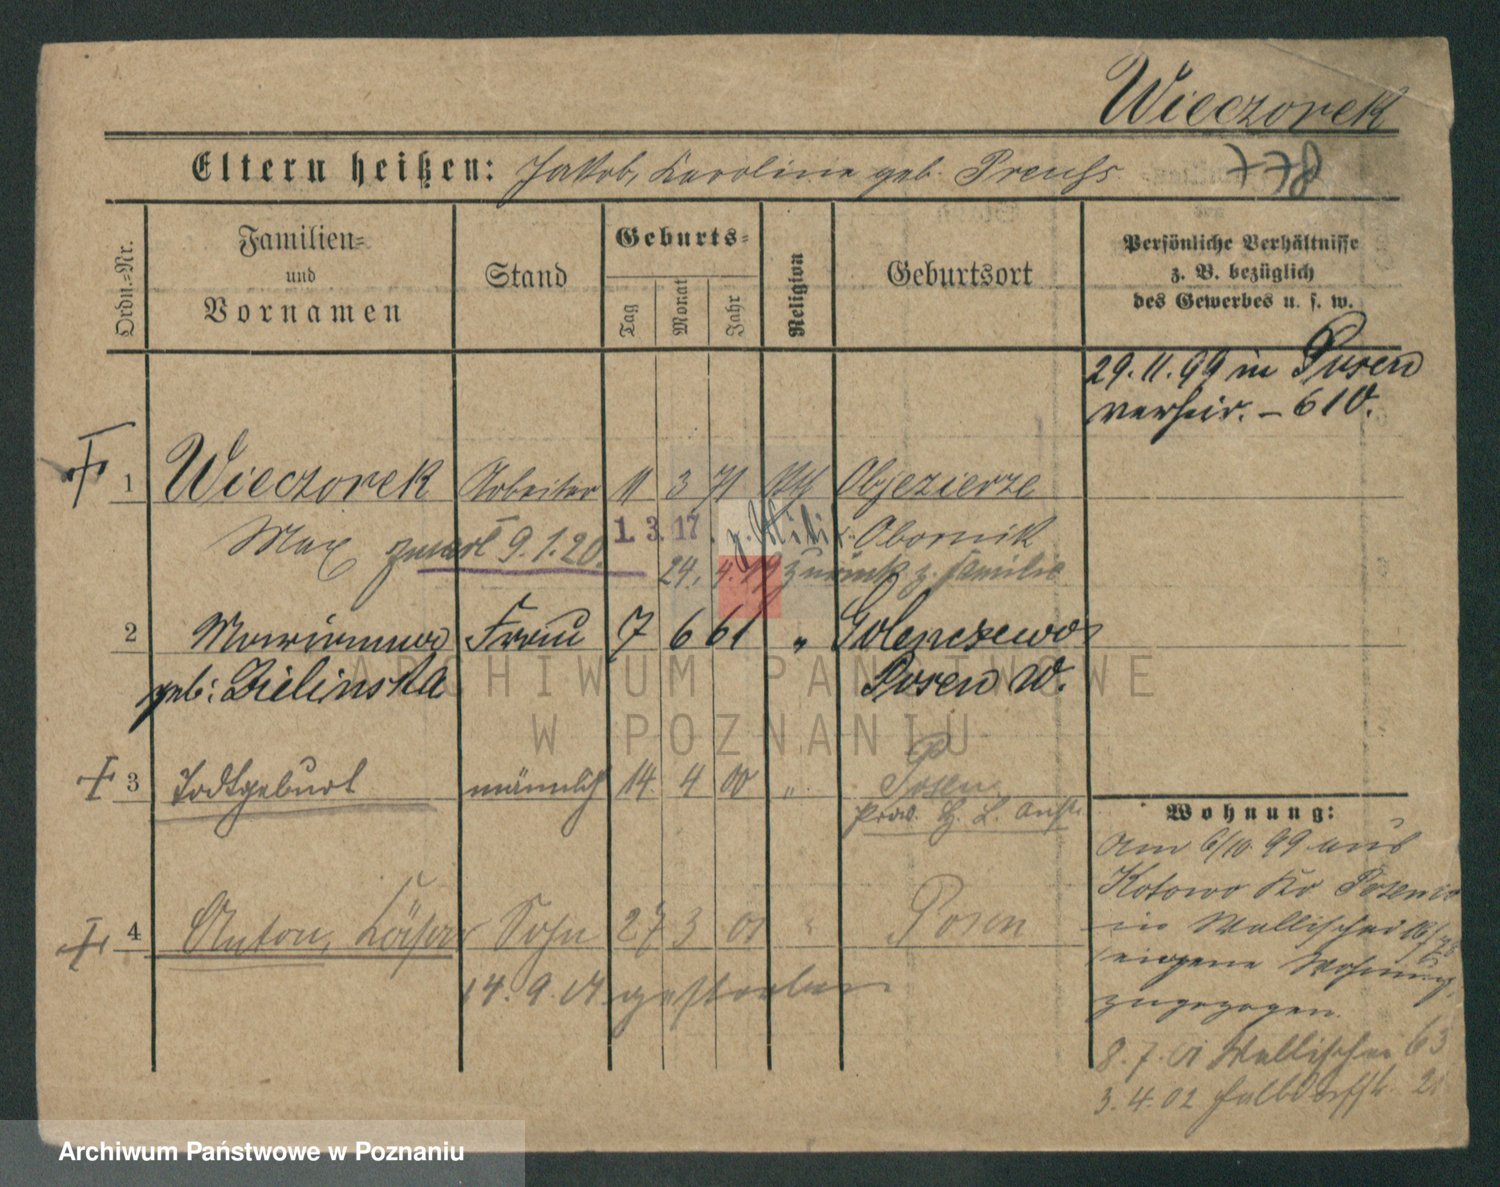 Wieczorek
Eltern heißen: Jakob, Karoline geb. Preuss
778
Ordn.-Nr.
Familien-
und
Vornamen
Stand
Geburts-
Tag
Monat
Jahr
Religion
Geburtsort
Persönliche Verhältnisse
z. B. bezüglich
des Gewerbes u. s. w.
29.11.99 in Posen
verheir. – 610.
1 Wieczorek Arbeiter 11 3 71 Objezierze
Max 9.1.20. 1. 3. 17. z. Obornik
24. 4. 19 zurück z. Familie
2 Marianna Frau 7 6 61 " Golenczewo
geb: Zielinska Posen W.
3 Todtgeburt männlich 14. 4 00 " Posen
prov. H. L. Anst.
4 Anton, Sohn 27 3 01 " Posen
14. 9. 01 gestorben
Wohnung:
Am 6/10 99 aus
Kotowo Kr Posen
in Wallischei
eigene Wohnung
zugezogen.
8. 7. 01 Wallischei 63
3. 4. 02
ARCHIWUM PAŃSTWOWE
W POZNANIU
Archiwum Państwowe w Poznaniu